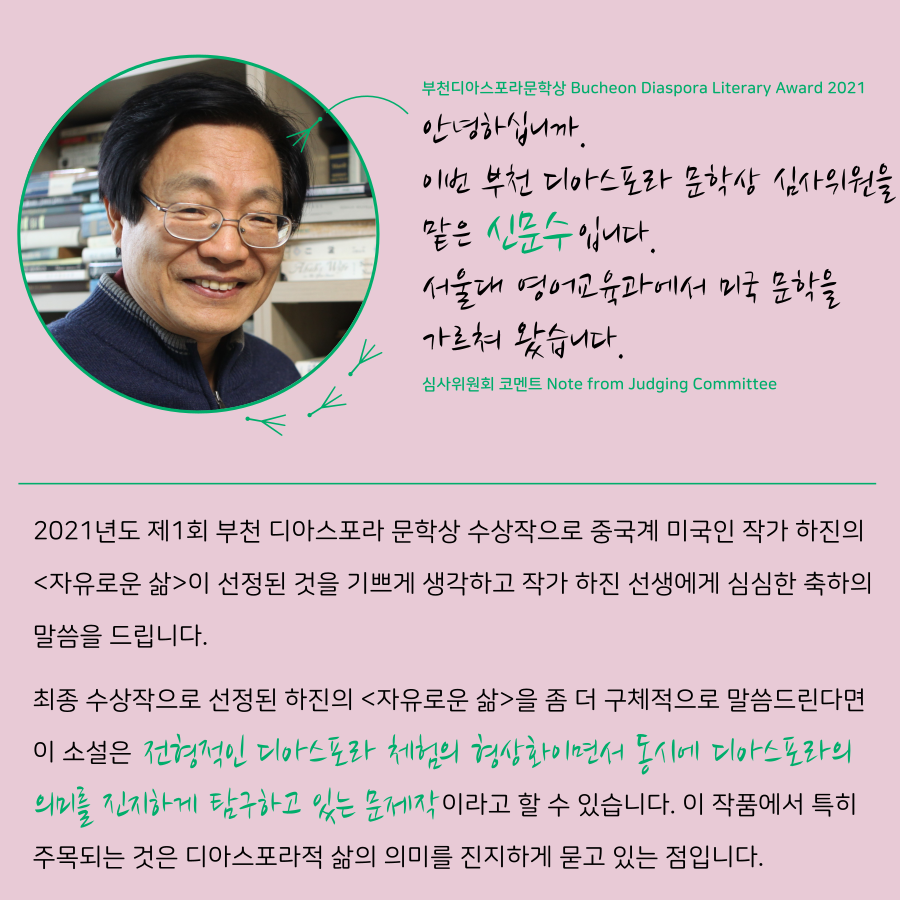 부천디아스포라문학상 Bucheon Diaspora Literary Award 2021
안녕하십니까.
이번 부천 디아스포라 문학상 심사위원을
맡은 신문수입니다.
서울대 영어교육과에서 미국 문학을
가르쳐 왔습니다.
심사위원회 코멘트 Note from Judging Committee
2021년도 제1회 부천 디아스포라 문학상 수상작으로 중국계 미국인 작가 하진의
<자유로운 삶>이 선정된 것을 기쁘게 생각하고 작가 하진 선생에게 심심한 축하의
말씀을 드립니다.
최종 수상작으로 선정된 하진의 <자유로운 삶>을 좀 더 구체적으로 말씀드린다면
이 소설은 전형적인 디아스포라 체험의 형상화이면서 동시에 디아스포라의
의미를 진지하게 탐구하고 있는 문제작이라고 할 수 있습니다. 이 작품에서 특히
주목되는 것은 디아스포라적 삶의 의미를 진지하게 묻고 있는 점입니다.